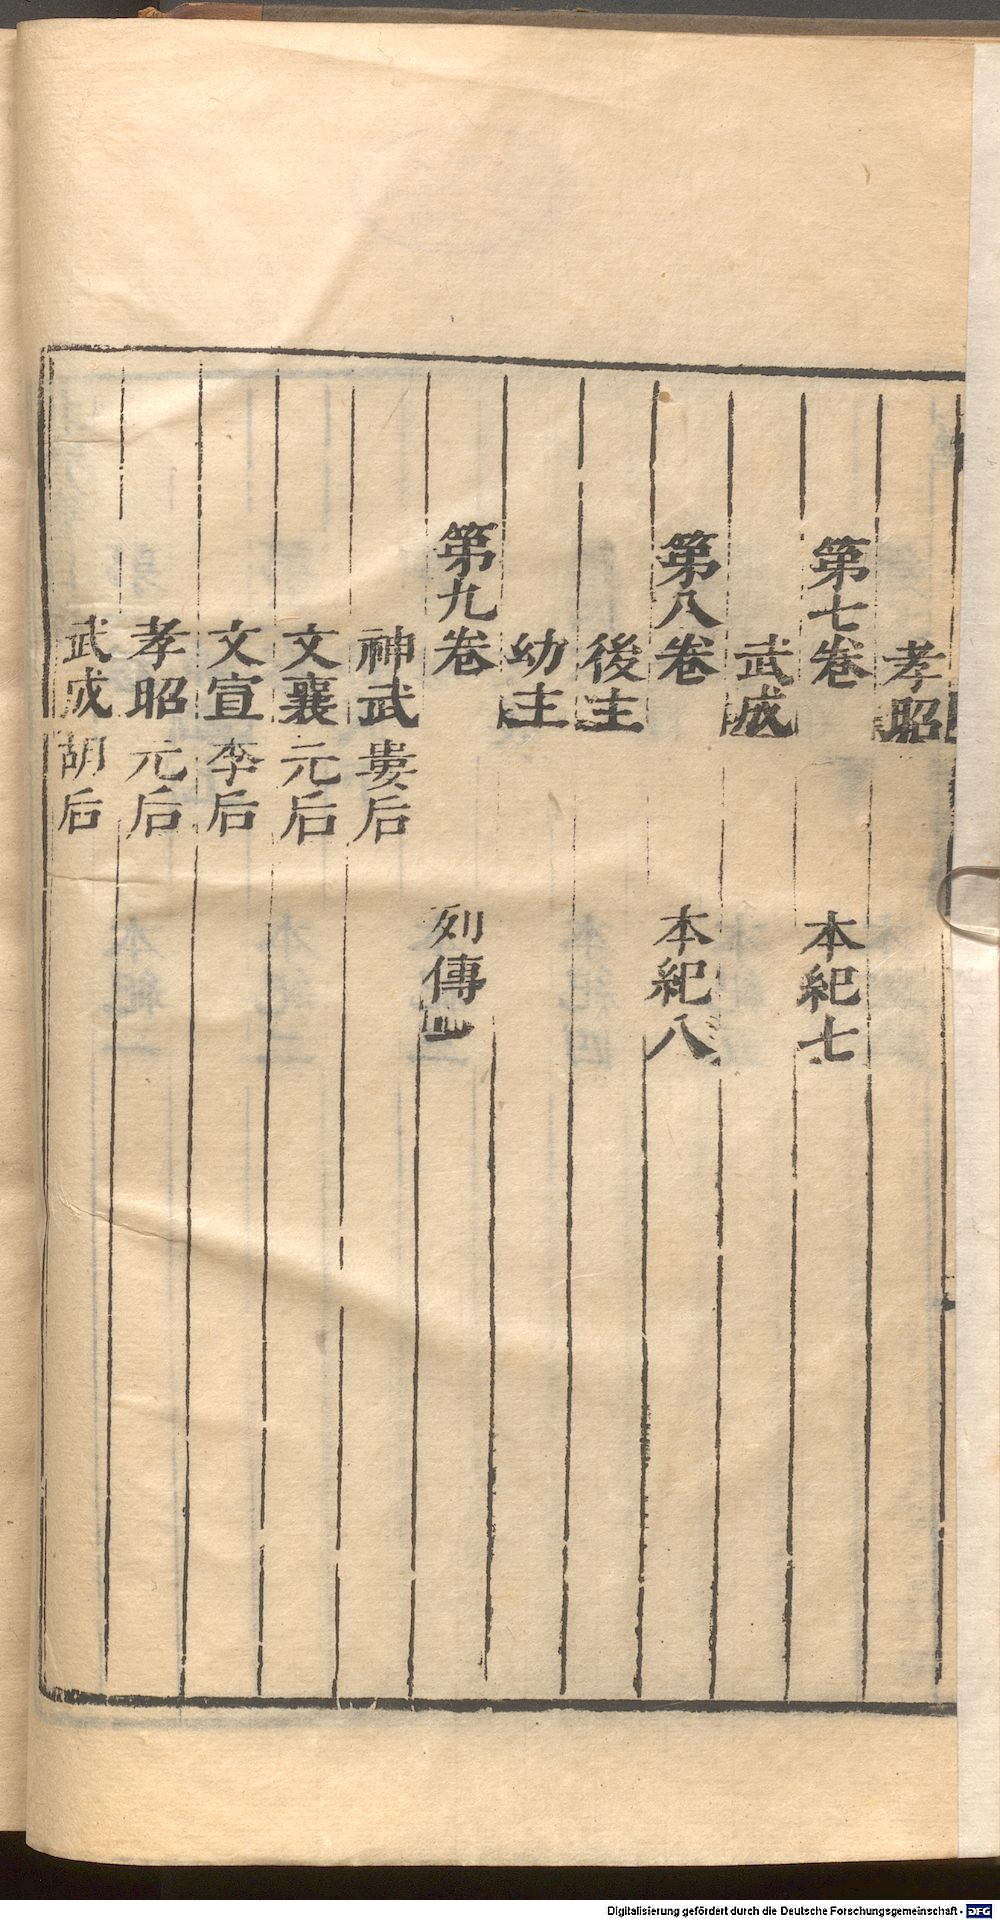 孝昭
第七卷 本紀七
武成
第八卷 本紀八
後主
幼主
第九卷 列傳
神武婁后
文襄元后
文宣李后
孝昭元后
武成胡后
Digitalisierung gefördert durch die Deutsche Forschungsgemeinschaft - DFG